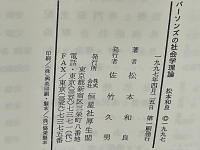 パーソンズの社会学理論　松本和良 © 一九九七
一九九七年四月二五日　第一刷発行
著者　松本和良
発行者　佐竹久男
発行所　株式会社　恒星社厚生閣
東京都新宿区三栄町八番地
電話・東京(三三五九)七三七一
FAX／東京(三三五九)七三七五